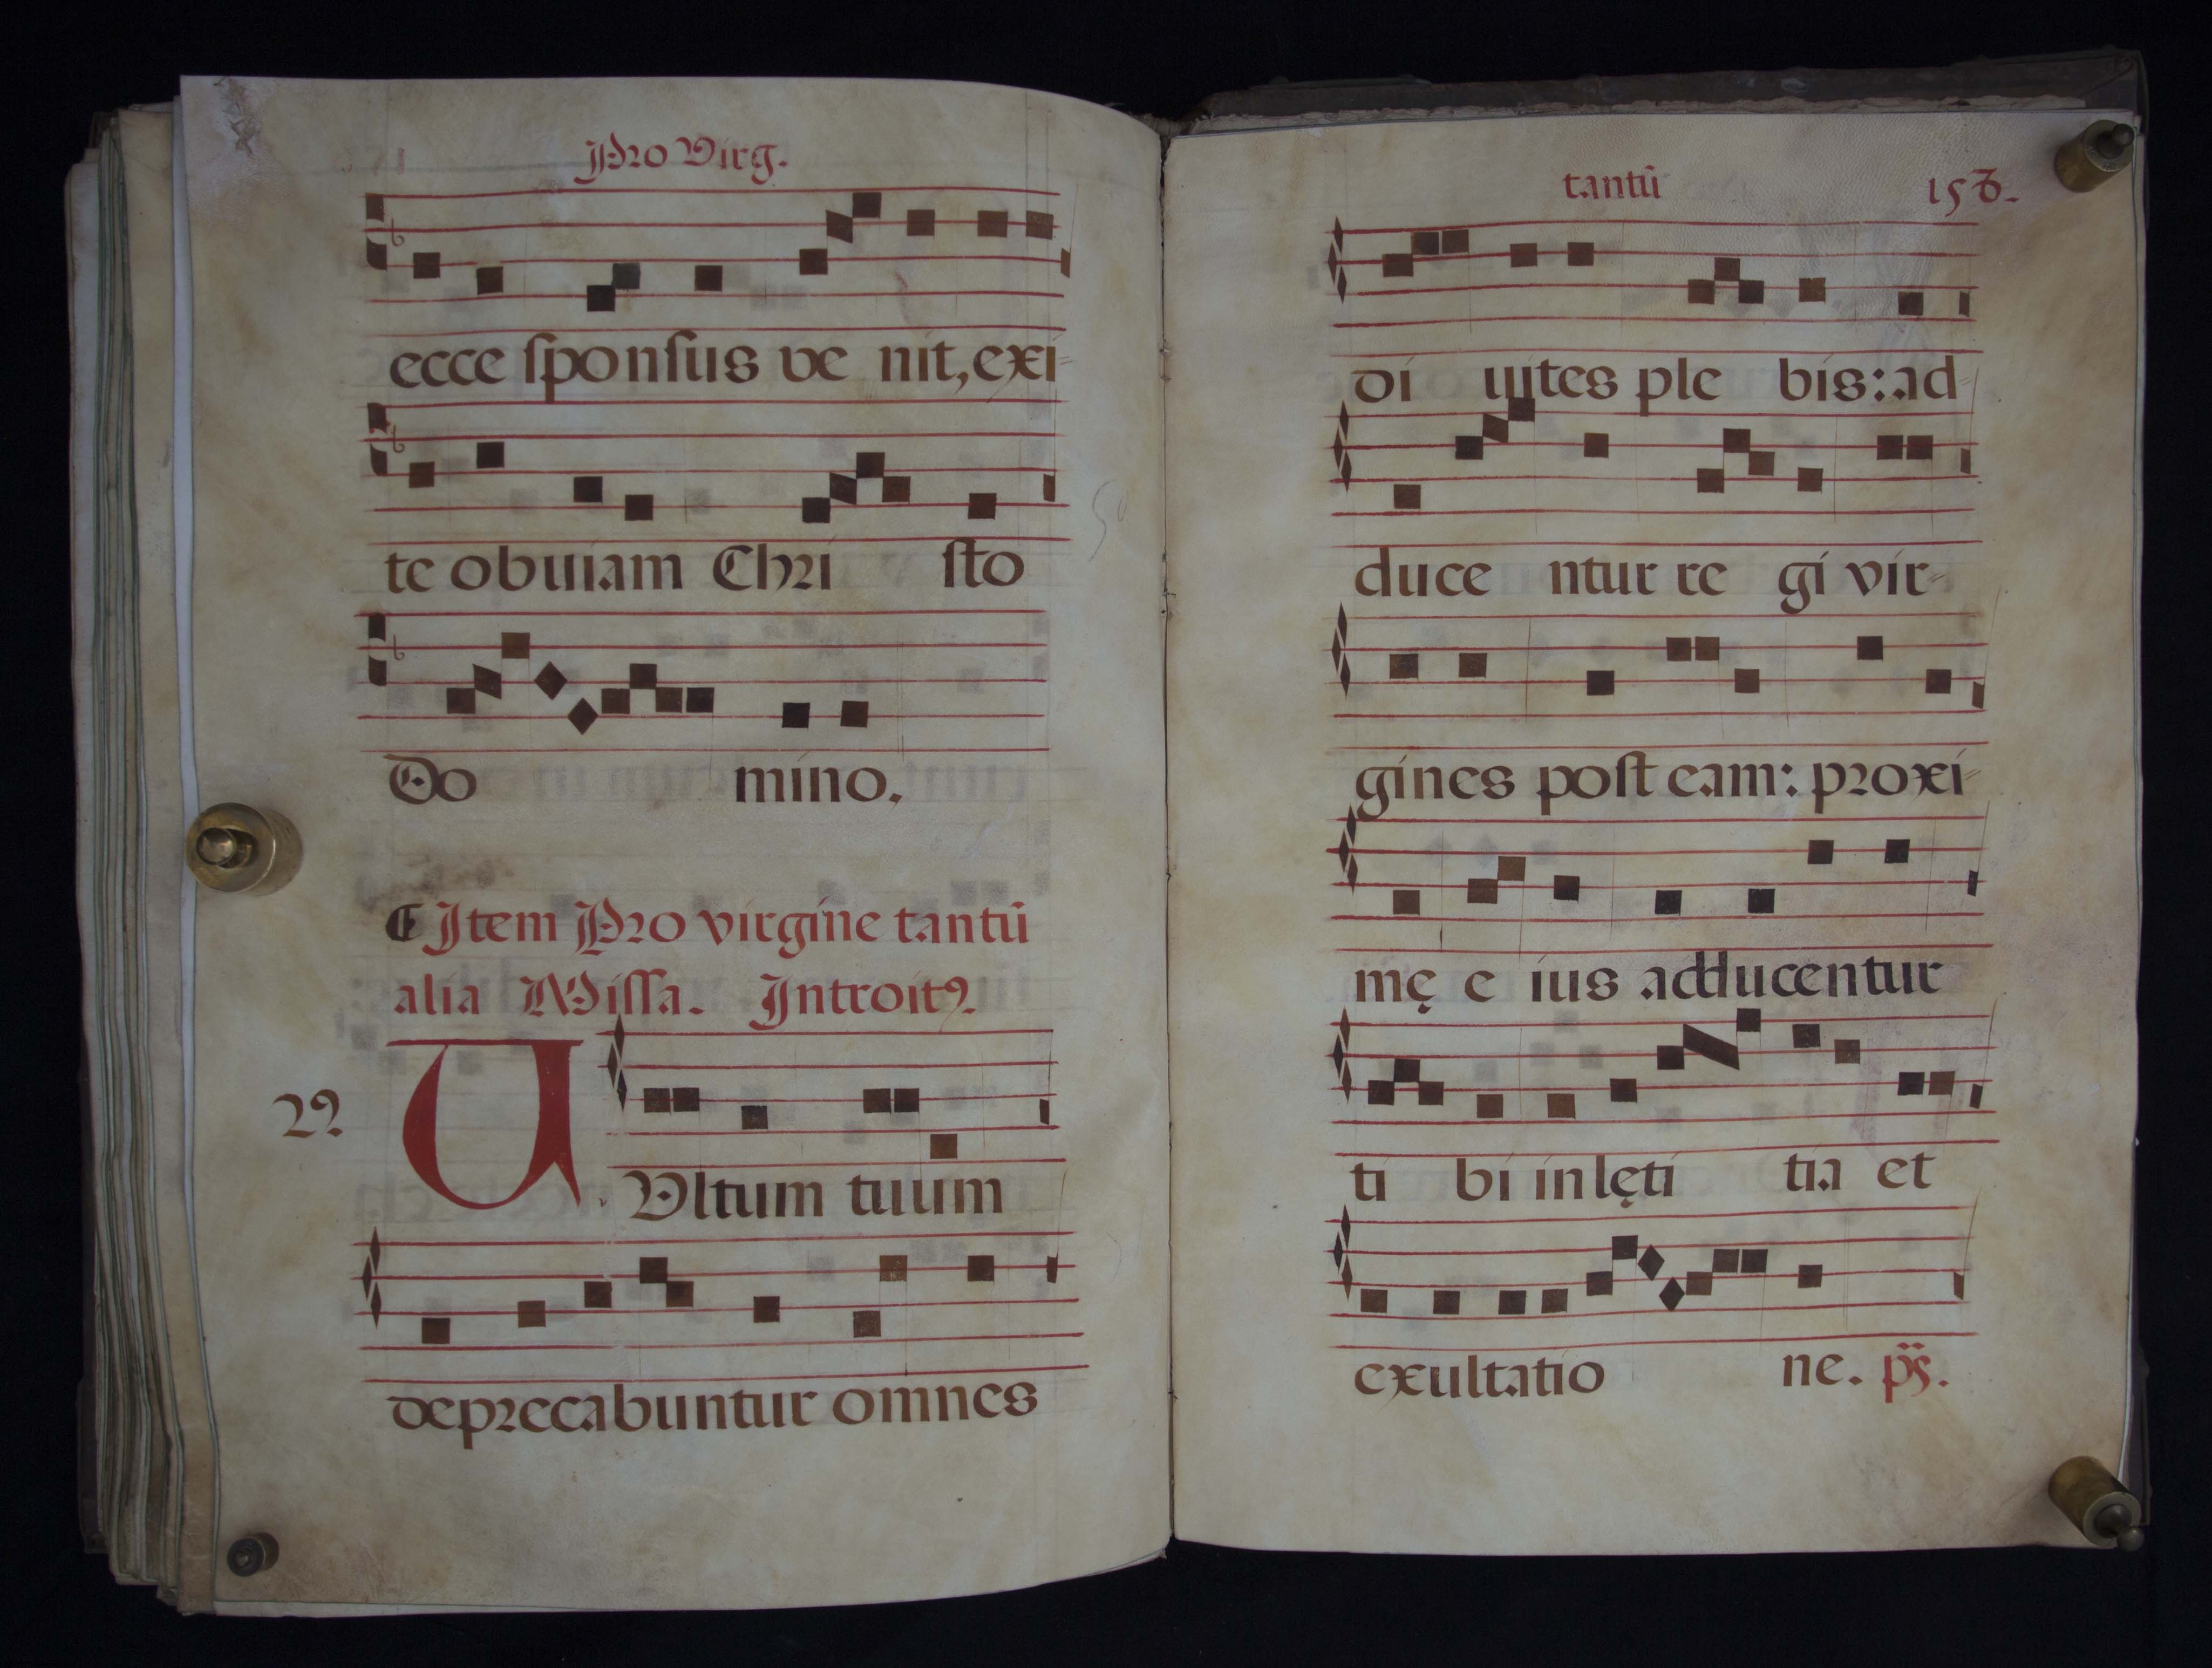 Pro Virg.
ecce ſponſus ve nit, exi-
te obuiam Chri ſto
Do mino.
Item Pro virgine tantū
alia Miſſa. Introitꝰ
22
V Vltum tuum
deprecabuntur omnes
tantū
di uites ple bis: ad
duce ntur re gi vir-
gines poſt eam: proxi-
mę e ius adducentur
ti bi in lęti tia et
exultatio ne. ps.